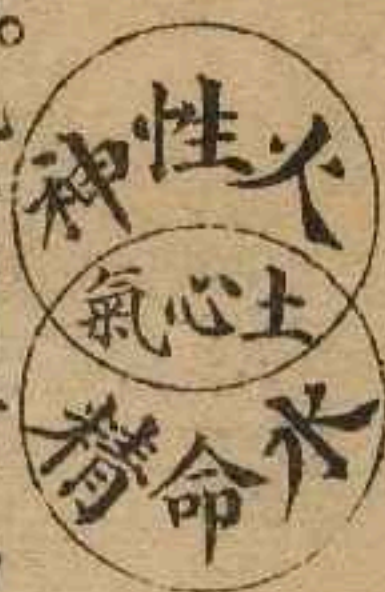 火性神
土心氣
水命精